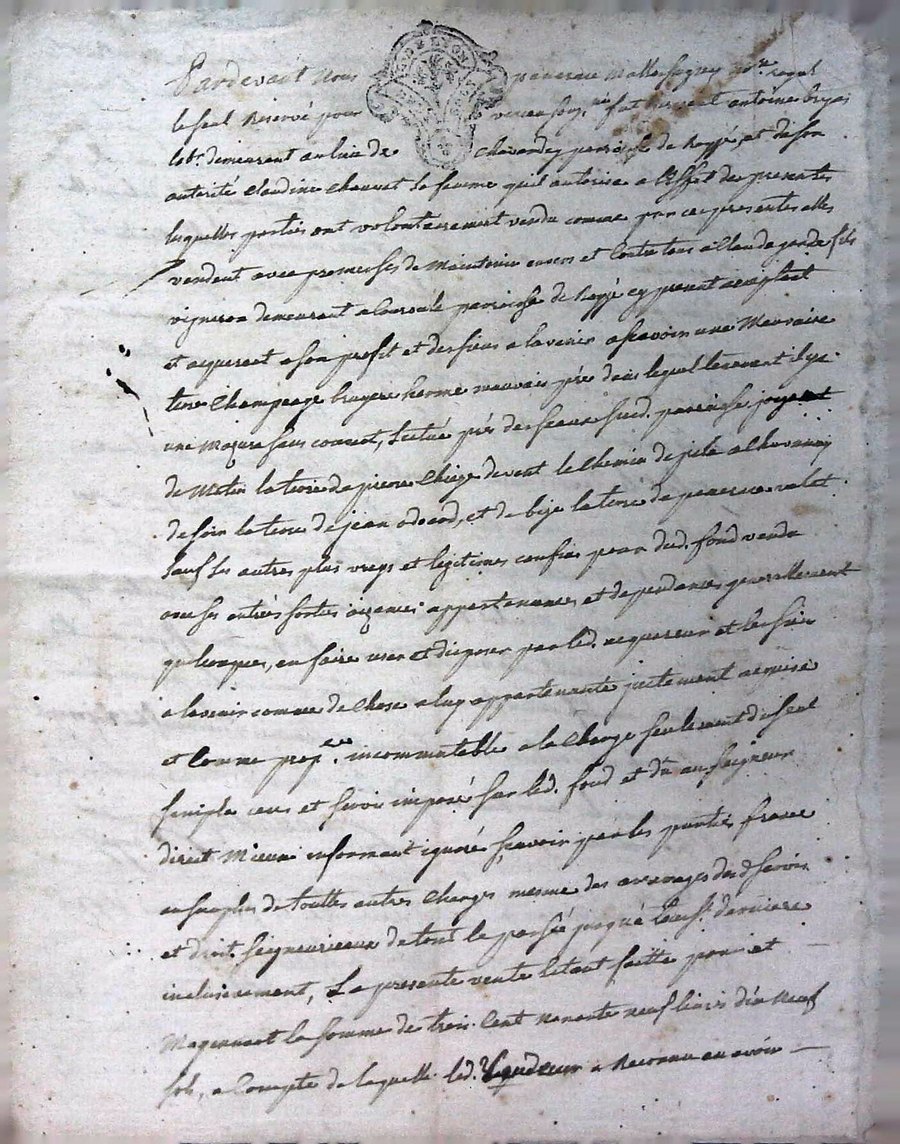 Pardevant Nous DE LYON Royal
le seul Reservé pour fut present antoine
lab.r demeurant au lieu de parroisse de et de son
autorité Claudine Chauvet sa femme quil autorise a l'Effet des presentes
lesquelles parties ont volontairement vendu comme par ces presentes elles
vendent avec promesses de Maintenir envers et Contre tous a Claude fils
vigneron demeurant a parroisse de cy present acceptant
et aquerant a son profit et des siens a lavenir a scavoir une Mauvaise
terre Champeage bruyere herme mauvais pré dans lequel tenement il ya
une Mazure sans couvert, Scitué près de sud. parroisse joignant
de Matin la terre de pierre devent le Chemin de a
de soir la terre de jean et de bize la terre de
sauf ses autres plus vrays et legitimes confins pour dud. fond vendu
avec ses entrées sorties aizances appartenances et dependances generallement
quelconques, en faire user et disposer par led. acquereur et les siens
a lavenir comme de Chose a luy appartenante justement acquise
et Comme prop.re incommutable a la Charge seulement
simple cens et servis imposé sur led. fond et dû au seigneur
direct Mieux informant ignoré scavoir par les parties franc
au surplus de touttes autres Charges mesme des arrerages desd. servis
et droit Seigneuriaux de tout le passé jusqué derniere
inclusivement, La presente vente Etant faitte pour et
Moyennant la somme de trois Cent Nonante neuf livres dix Neuf
sols, a Compte de laquelle led. Vendeur a Reconnu avoir